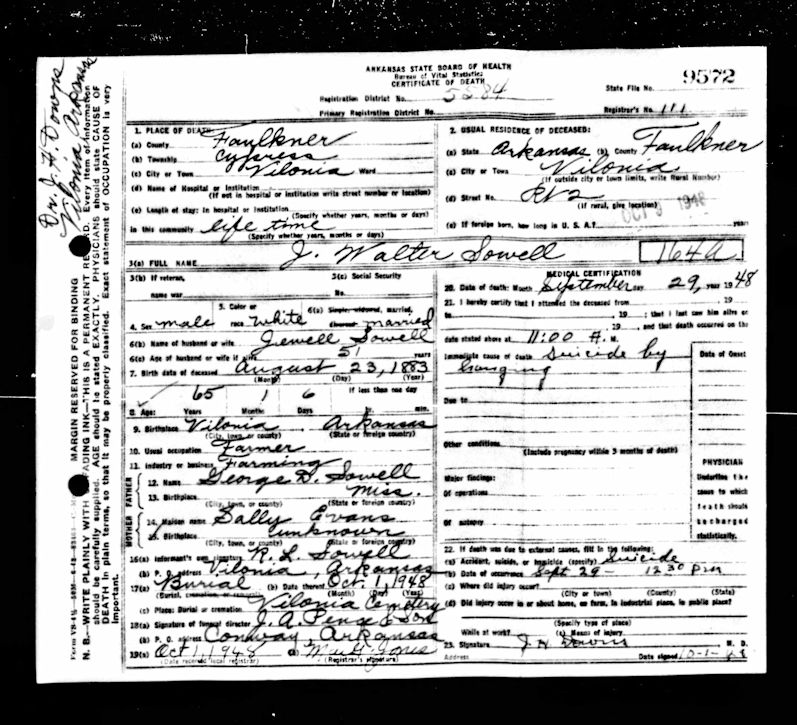 ARKANSAS STATE BOARD OF HEALTH
Bureau of Vital Statistics
CERTIFICATE OF DEATH
State File No. 9572
Registration District No. 5284
Registrar's No. 111
Primary Registration District No.
Dr. J. H. Downs
Vilonia Arkansas
MARGIN RESERVED FOR BINDING
N. B.—WRITE PLAINLY WITH FADING INK—THIS IS A PERMANENT RECORD. Every item of information
should be carefully supplied. AGE should be stated EXACTLY. PHYSICIANS should state CAUSE OF
DEATH in plain terms, so that it may be properly classified. Exact statement of OCCUPATION is very
important.
1. PLACE OF DEATH
(a) County Faulkner
(b) Township Cypress
(c) City or Town Vilonia Ward
(d) Name of Hospital or Institution
(If not in hospital or institution write street number or location)
(e) Length of stay: In hospital or institution
(Specify whether years, months or days)
In this community life time
(Specify whether years, months or days)
2. USUAL RESIDENCE OF DECEASED:
(a) State Arkansas (b) County Faulkner
(c) City or Town Vilonia
(If outside city or town limits, write Rural Number)
(d) Street No. Rt 2
(If rural, give location)
OCT 9 1948
(e) If foreign born, how long in U. S. A.? years
3(a) FULL NAME J. Walter Sowell
164A
3(b) If veteran,
name war
3(c) Social Security
No.
4. Sex male
5. Color or
race white
6(a) Single, widowed, married,
divorced married
6(b) Name of husband or wife Jewell Sowell
6(c) Age of husband or wife if alive 51 years
7. Birth date of deceased August 23, 1883
(Month) (Day) (Year)
8. Age: 65 Years 1 Months 6 Days
If less than one day
hr. min.
9. Birthplace Vilonia Arkansas
(City, town, or county) (State or foreign country)
10. Usual occupation Farmer
11. Industry or business Farming
FATHER
12. Name George D. Sowell
13. Birthplace Miss.
(City, town, or county) (State or foreign country)
MOTHER
14. Maiden name Sally Evans
15. Birthplace unknown
(City, town, or county) (State or foreign country)
16(a) Informant's own signature R. L. Sowell
(b) P. O. address Vilonia, Arkansas
17(a) Burial (b) Date thereof Oct. 1, 1948
(Burial, cremation, or removal) (Month) (Day) (Year)
(c) Place: Burial or cremation Vilonia Cemetery
18(a) Signature of funeral director J. A. Pence & Son
(b) P. O. address Conway, Arkansas
19(a) Oct 1, 1948 (b)
(Date received local registrar) (Registrar's signature)
MEDICAL CERTIFICATION
20. Date of death: Month September day 29, year 1948
21. I hereby certify that I attended the deceased from , 19
to , 19 ; that I last saw him alive on
, 19 , and that death occurred on the
date stated above at 11:00 A. M.
Immediate cause of death Suicide by
hanging
Date of Onset
Due to
Other conditions
(Include pregnancy within 3 months of death)
Major findings:
Of operations
Of autopsy
PHYSICIAN
Underline the
cause to which
death should
be charged
statistically.
22. If death was due to external causes, fill in the following:
(a) Accident, suicide, or homicide (specify) Suicide
(b) Date of occurrence Sept 29 - 12 30 Pm
(c) Where did injury occur?
(City or town) (County) (State)
(d) Did injury occur in or about home, on farm, in industrial place, in public place?
(Specify type of place)
While at work? (e) Means of injury
23. Signature J H Downs M. D.
Address Date signed 10-1-48